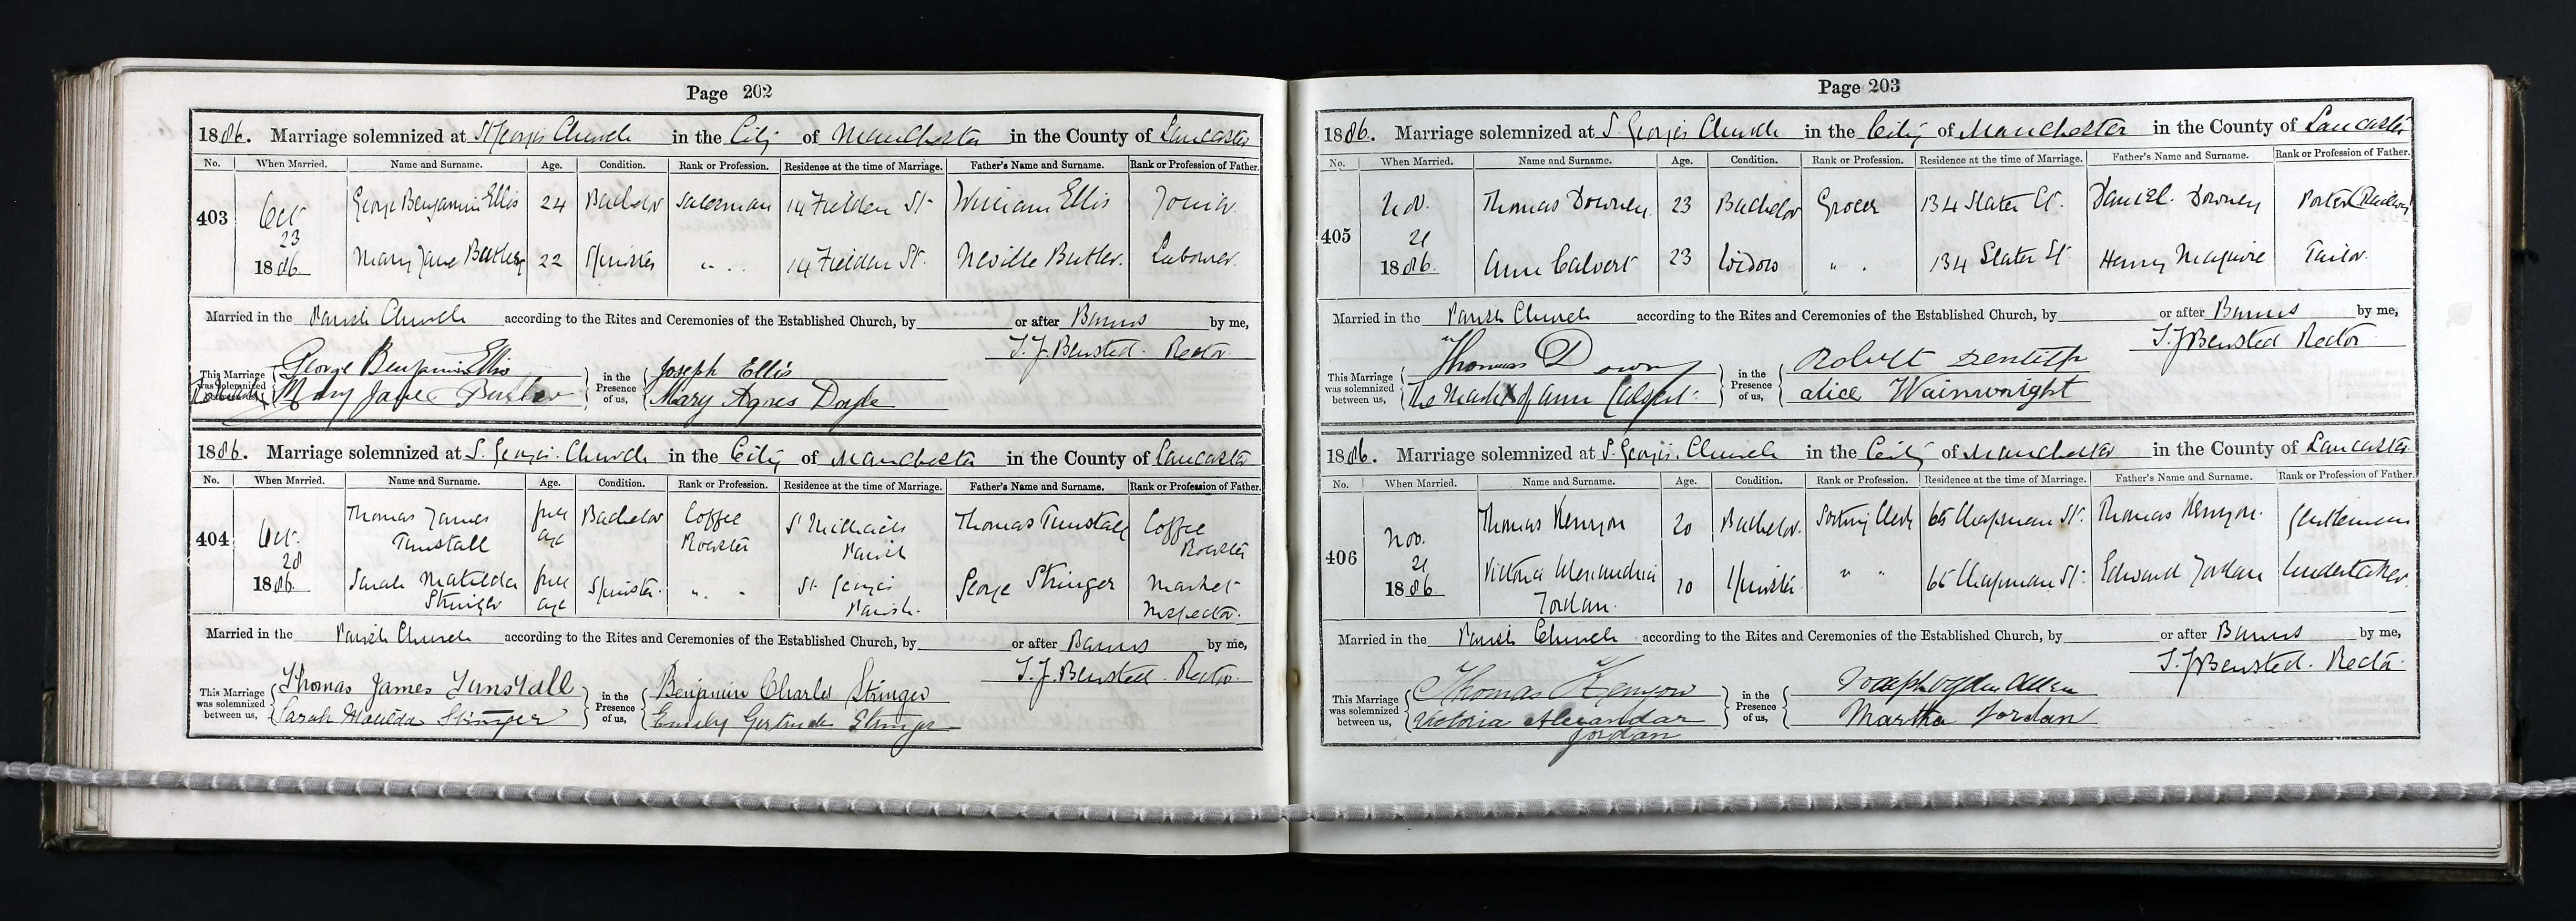 Page 202
1886. Marriage solemnized at St Georges Church in the City of Manchester in the County of Lancaster
No. When Married. Name and Surname. Age. Condition. Rank or Profession. Residence at the time of Marriage. Father's Name and Surname. Rank or Profession of Father.
403 Oct 23 1886 George Benjamin Ellis 24 Bachelor Salesman 14 Fielden St William Ellis Joiner
Mary Jane Butler 22 Spinster " " 14 Fielden St. Neville Butler. Labourer
Married in the Parish Church according to the Rites and Ceremonies of the Established Church, by or after Banns by me,
T. J. Bensted. Rector
This Marriage was solemnized between us, George Benjamin Ellis in the Presence of us, Joseph Ellis
Mary Jane Butler Mary Agnes Doyle
1886. Marriage solemnized at S. Georges Church in the City of Manchester in the County of Lancaster
No. When Married. Name and Surname. Age. Condition. Rank or Profession. Residence at the time of Marriage. Father's Name and Surname. Rank or Profession of Father.
404 Oct. 28 1886 Thomas James Tunstall full age Bachelor Coffee Roaster St Michaels Parish Thomas Tunstall Coffee Roaster
Sarah Matilda Stringer full age Spinster " " St. Georges Parish. George Stringer Market Inspector.
Married in the Parish Church according to the Rites and Ceremonies of the Established Church, by or after Banns by me,
T. J. Bensted. Rector
This Marriage was solemnized between us, Thomas James Tunstall in the Presence of us, Benjamin Charles Stringer
Sarah Matilda Stringer Emily Gertrude Stringer
Page 203
1886. Marriage solemnized at S. Georges Church in the City of Manchester in the County of Lancaster
No. When Married. Name and Surname. Age. Condition. Rank or Profession. Residence at the time of Marriage. Father's Name and Surname. Rank or Profession of Father.
405 Nov. 21 1886. Thomas Downey 23 Bachelor Grocer 134 Slater St. Daniel Downey Porter (Railway)
Ann Calvert 23 Widow " " 134 Slater St Henry Maguire Tailor
Married in the Parish Church according to the Rites and Ceremonies of the Established Church, by or after Banns by me,
T. J Bensted Rector
This Marriage was solemnized between us, Thomas Downy in the Presence of us, Robert
The Mark X of Ann Calvert. alice Wainwright
1886. Marriage solemnized at S. Georges Church in the City of Manchester in the County of Lancaster
No. When Married. Name and Surname. Age. Condition. Rank or Profession. Residence at the time of Marriage. Father's Name and Surname. Rank or Profession of Father.
406 Nov. 21 1886. Thomas Kenyon 20 Bachelor Sorting Clerk 65 Chapman St. Thomas Kenyon. Gentleman
Victoria Alexandria Jordan. Spinster " " 65 Chapman St. Edward Jordan Undertaker.
Married in the Parish Church according to the Rites and Ceremonies of the Established Church, by or after Banns by me,
T. J Bensted. Rector
This Marriage was solemnized between us, Thomas Kenyon in the Presence of us, Joseph Ogden Allen
Victoria Alexandar Jordan Martha Jordan